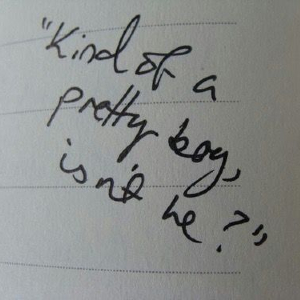 "Kind of a
pretty boy,
isn't
he?"